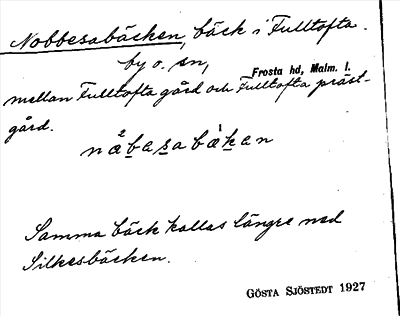 Nobbesabäcken, bäck i Fulltofta.
by o. sn,
Frosta hd, Malm. l.
mellan Fulltofta gård och Fulltofta präst-
gård.
næ̀basabàkan
Samma bäck kallas längre ned
Silkesbäcken.
GÖSTA SJÖSTEDT 1927